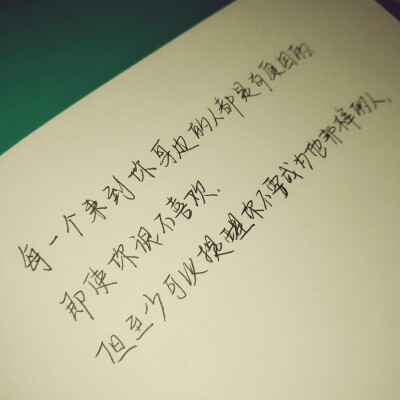 每一个来到你身边的人都是有原因的.
即使你很不喜欢.
但至少可以提醒你不要成为他那样的人.